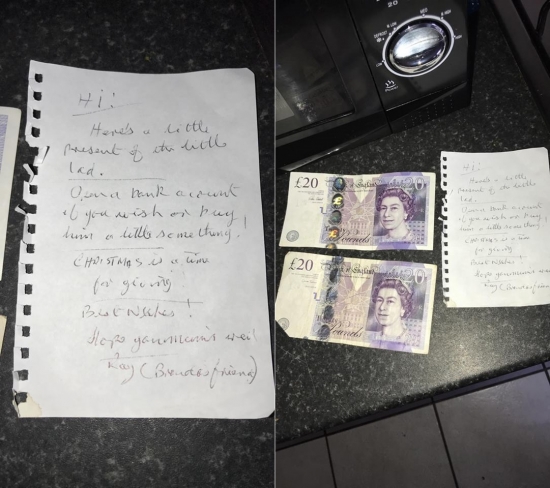 Hi!
Here's a little
present of the little
lad.
Open a bank account
if you wish or buy
him a little something!
CHRISTMAS is a time
for giving
Best Wishes!
Hope you
Ray (Brendas friend)
20
£20
Bank of England
£20
Bank of England
Pounds
Hi!
Here's a little
present of the little
lad.
Open a bank account
if you wish or buy
him a little something
CHRISTMAS is a time
for giving
Best Wishes!
Hope you
Ray (Brendas friend)